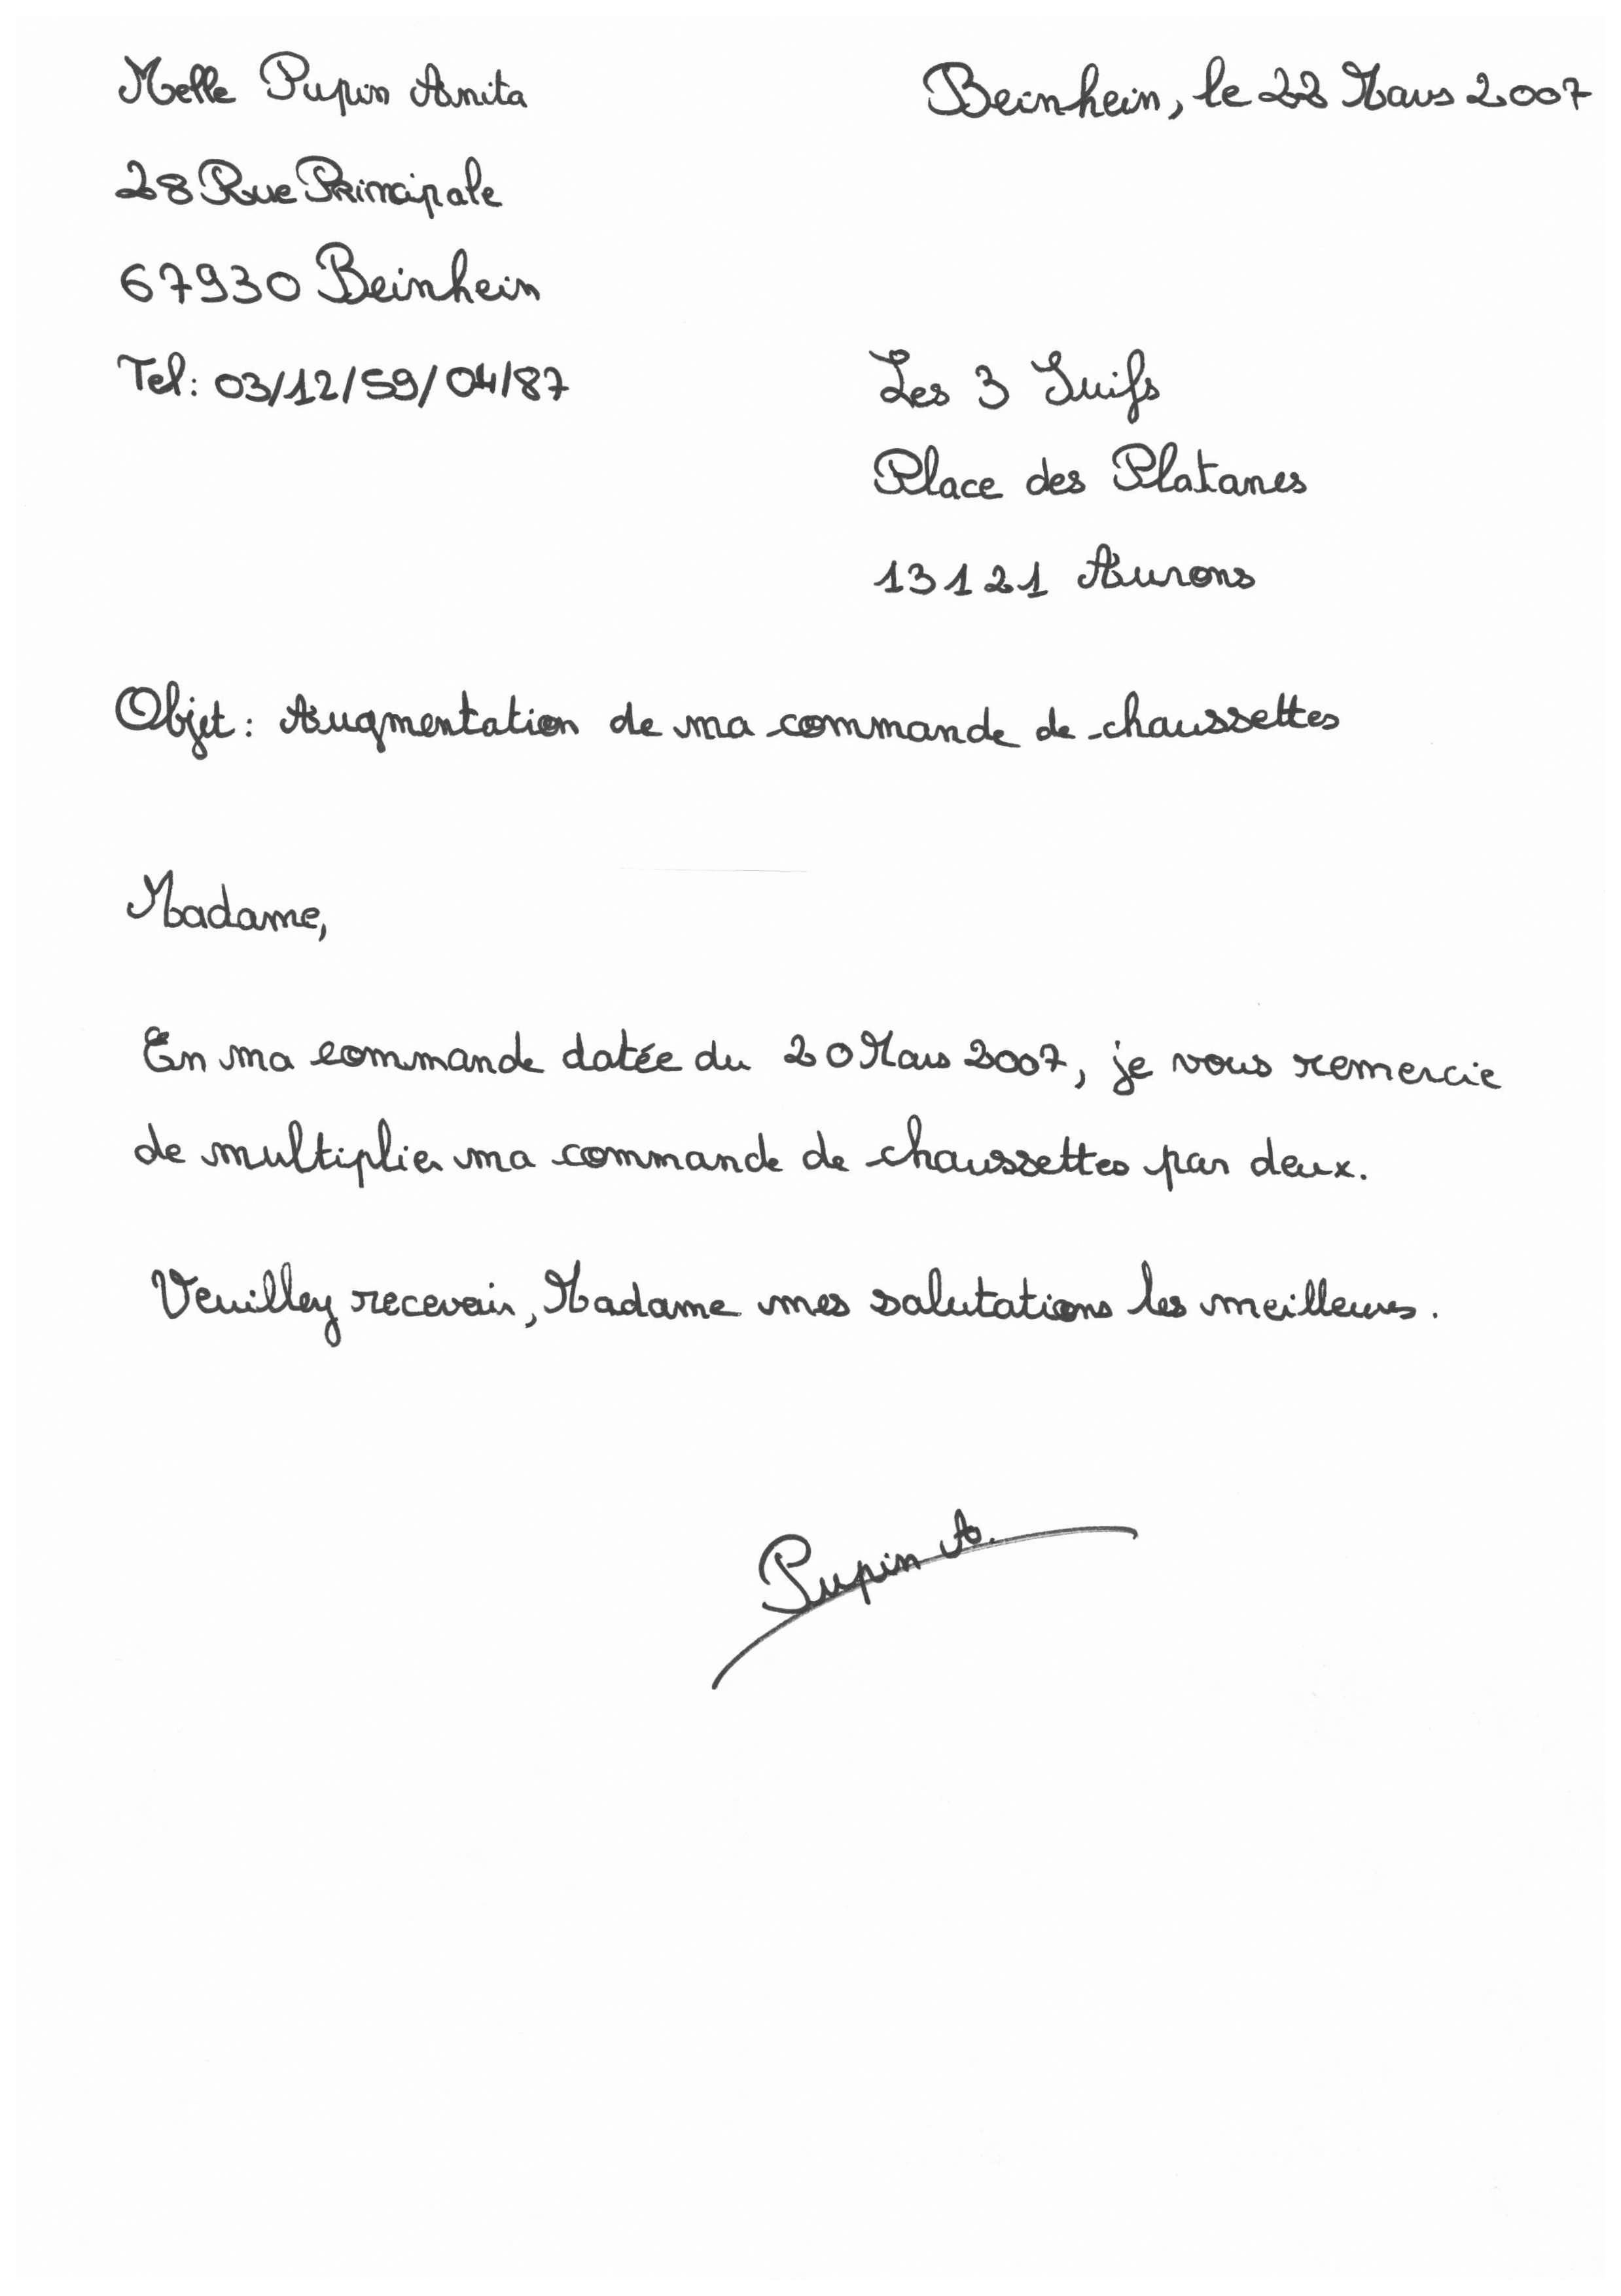 Melle Pupin Anita
Beinhein, le 22 Mars 2007
28 Rue Principale
67930 Beinhein
Tel: 03/12/59/04/87
Les 3 Suifs
Place des Platanes
13121 Aurons
Objet: Augmentation de ma commande de chaussettes
Madame,
En ma commande datée du 20 Mars 2007, je vous remercie
de multiplier ma commande de chaussettes par deux.
Veuillez recevoir, Madame mes salutations les meilleures.
Pupin A.